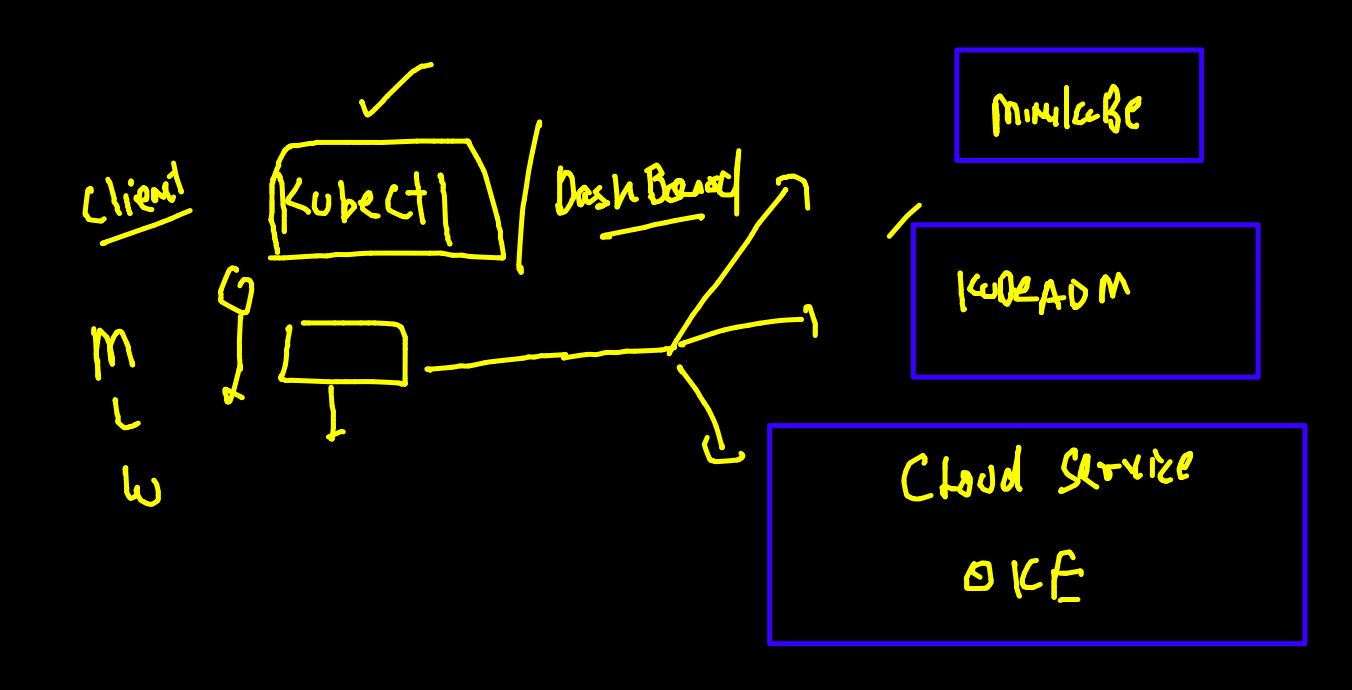 Client
Kubectl
DashBoard
M
L
W
MiniKuBe
KuBeADM
Cloud Service
OKE